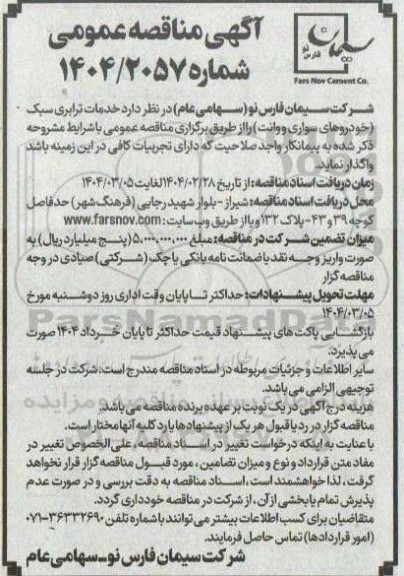 سیمان
فارس نو
Fars Nov Cement Co.
آگهی مناقصه عمومی
شماره ۱۴۰۴/۲۰۵۷
شرکت سیمان فارس نو (سهامی عام) در نظر دارد خدمات ترابری سبک
(خودروهای سواری و وانت) را از طریق برگزاری مناقصه عمومی با شرایط مشروحه
ذکر شده به پیمانکار واجد صلاحیت که دارای تجربیات کافی در این زمینه باشد
واگذار نماید.
زمان دریافت اسناد مناقصه: از تاریخ ۱۴۰۴/۰۲/۲۸ لغایت ۱۴۰۴/۰۳/۰۵
محل دریافت اسناد مناقصه: شیراز - بلوار شهید رجایی (فرهنگ شهر) حدفاصل
کوچه ۳۹ و ۴۳ - پلاک ۱۳۲ و یا از طریق وب سایت: www.farsnov.com
میزان تضمین شرکت در مناقصه: مبلغ ۵.۰۰۰.۰۰۰.۰۰۰ (پنج میلیارد ریال) به
صورت واریز وجه نقد یا ضمانت نامه بانکی یا چک (شرکتی) صیادی در وجه
مناقصه گزار
مهلت تحویل پیشنهادات: حداکثر تا پایان وقت اداری روز دوشنبه مورخ
۱۴۰۴/۰۳/۰۵
بازگشایی پاکت های پیشنهاد قیمت حداکثر تا پایان خرداد ۱۴۰۴ صورت
می پذیرد.
سایر اطلاعات و جزئیات مربوطه در اسناد مناقصه مندرج است. شرکت در جلسه
توجیهی الزامی می باشد.
هزینه درج آگهی در یک نوبت بر عهده برنده مناقصه می باشد.
مناقصه گزار در رد یا قبول هر یک از پیشنهادها یا رد کلیه آنها مختار است.
با عنایت به اینکه درخواست تغییر در اسناد مناقصه، علی الخصوص تغییر در
مفاد متن قرارداد و نوع و میزان تضامین، مورد قبول مناقصه گزار قرار نخواهد
گرفت، لذا خواهشمند است، اسناد مناقصه به دقت بررسی و در صورت عدم
پذیرش تمام یا بخشی از آن، از شرکت در مناقصه خودداری گردد.
متقاضیان برای کسب اطلاعات بیشتر می توانند با شماره تلفن ۳۶۳۳۲۶۹۰-۰۷۱
(امور قراردادها) تماس حاصل فرمایند.
شرکت سیمان فارس نو - سهامی عام